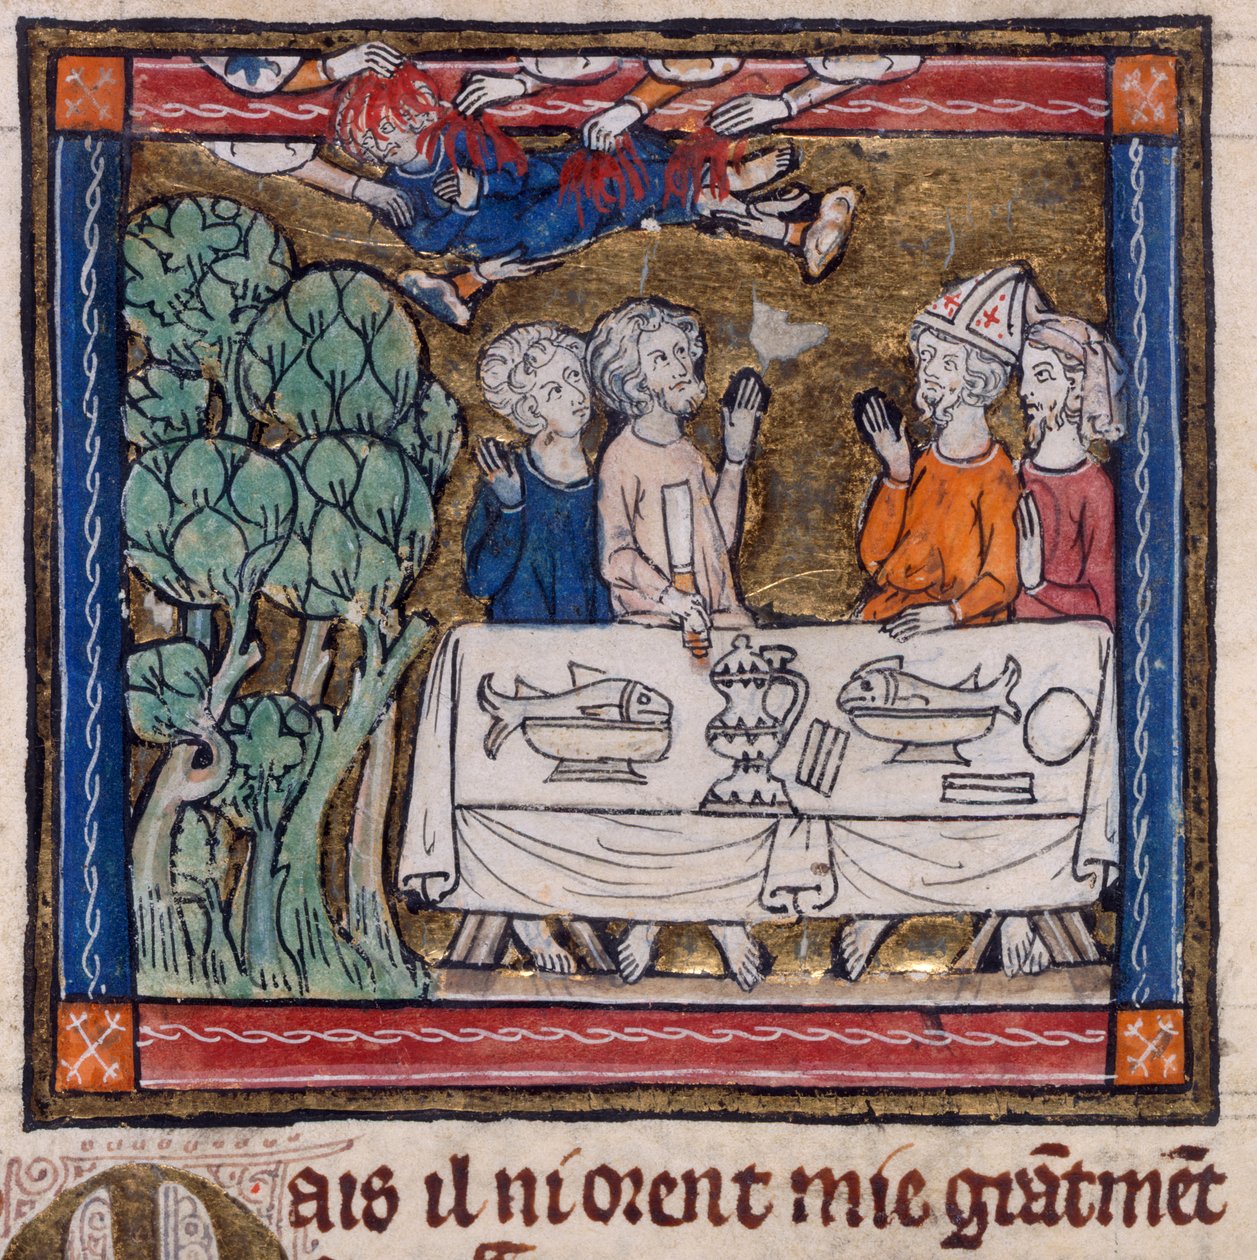 Mais il ni orent mie grãtmẽt